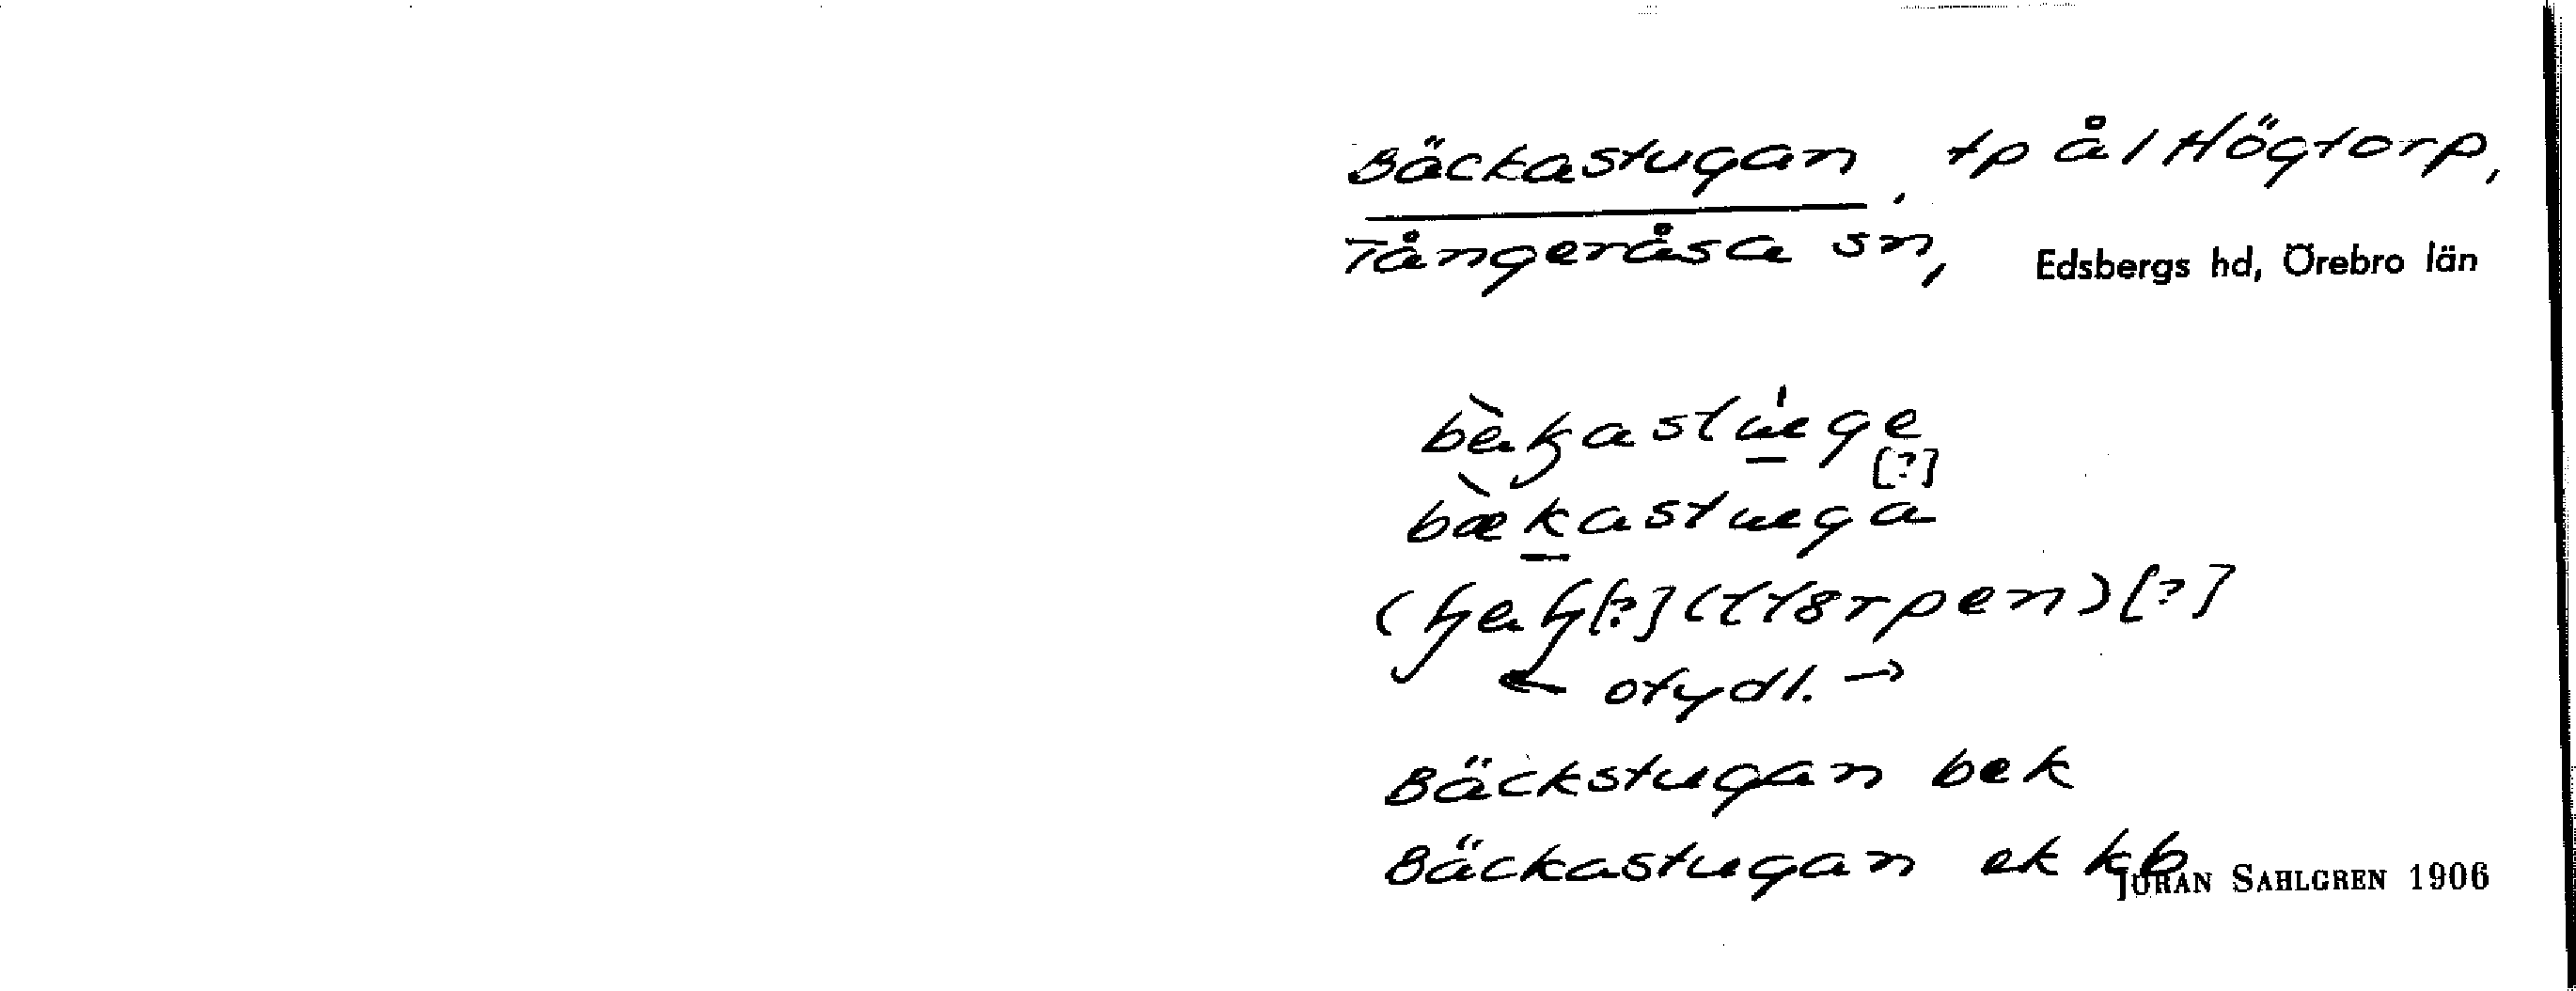 Bäckastugan, tp å l Högtorp,
Tångeråsa sn, Edsbergs hd, Örebro län
[?]
bækastuga
[?] [?]
← otydl. →
Bäckstugan bek
Bäckastugan ek kb
JÖRAN SAHLGREN 1906